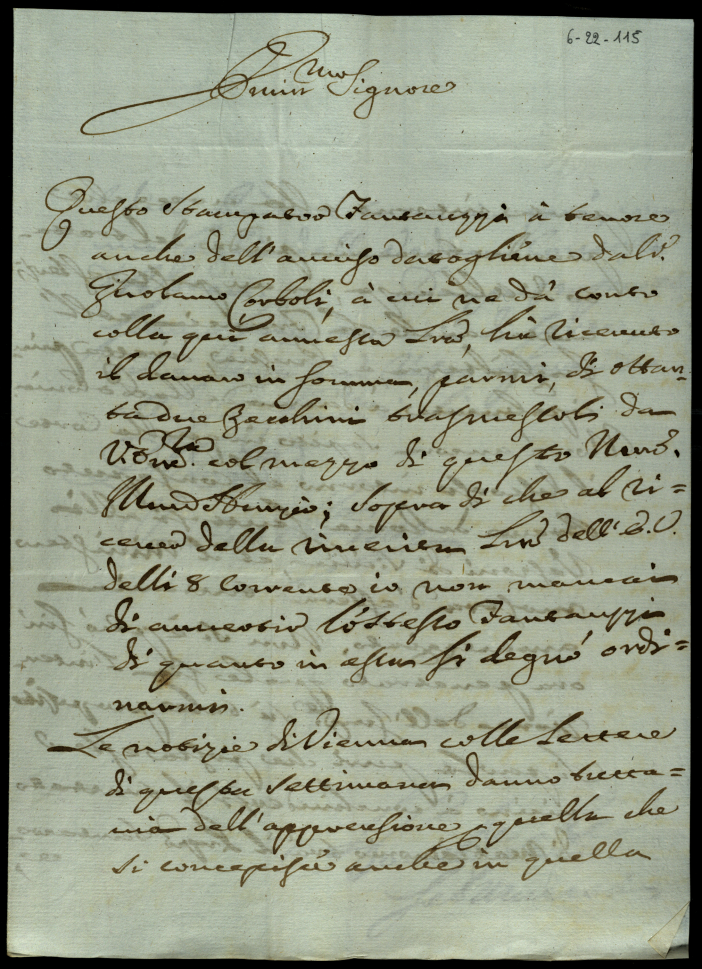 6-22-115
Emin.mo Signore
Questo Stampatore Fantauzzi à tenore
anche dell'auuiso datogliene dal S.
Girolamo Corboli, à cui ne dà conto
colla quì annessa Lra, hà riceuuto
il danaro in somma, parmi, di ottan-
tadue Zecchini trasmessoli da
V. Em.za col mezzo di questo
Nunzio; sopra di che al ri=
ceuere della riuerita Lra dell' E. V.
delli 8 corrente io non mancai
di auuertir l'istesso Fantauzzi
di quanto in essa si degnò ordi=
narmi.
Le notizie di Vienna colle Lettere
di questa settimana danno tutta=
uia dell'apprensione per quella che
si concepisce anche in quella